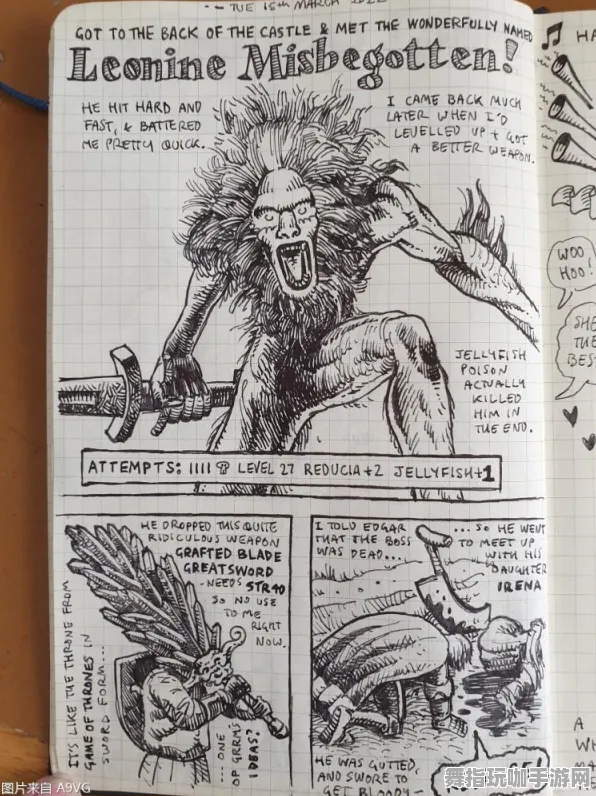 TUE 15TH MARCH
GOT TO THE BACK OF THE CASTLE & MET THE WONDERFULLY NAMED
Leonine Misbegotten!
HE HIT HARD AND
FAST, & BATTERED
ME PRETTY QUICK.
I CAME BACK MUCH
LATER WHEN I'D
LEVELLED UP + GOT
A BETTER WEAPON.
JELLYFISH
POISON
ACTUALLY
KILLED
HIM IN
THE END.
ATTEMPTS: IIII LEVEL 27 REDUCIA+2 JELLYFISH+1
HE DROPPED THIS QUITE
RIDICULOUS WEAPON
GRAFTED BLADE
GREATSWORD
- NEEDS STR 40
SO NO USE
TO ME
RIGHT
NOW.
IT'S LIKE THE THRONE FROM
GAME OF THRONES IN
SWORD FORM...
...ONE
OF GRRM'S
IDEAS?
I TOLD EDGAR
THAT THE BOSS
WAS DEAD...
...SO HE WENT
TO MEET UP
WITH HIS
DAUGHTER
IRENA
HE WAS GUTTED,
AND SWORE TO
GET BLOODY-
HA
WOO
HOO!
SHE
THE
BES
A
WH
MA
图片来自 A9VG
舞指玩咖手游网